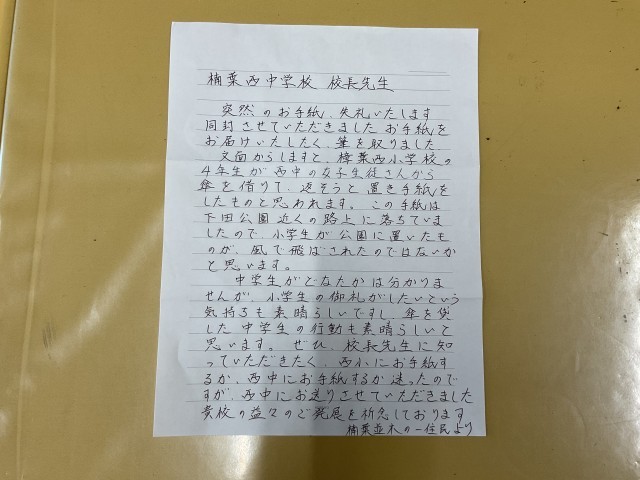 楠葉西中学校 校長先生
突然のお手紙、失礼いたします
同封させていただきましたお手紙を
お届けいたしたく、筆を取りました
文面からしますと、樟葉西小学校の
4年生が西中の女子生徒さんから
傘を借りて、返そうと置き手紙を
したものと思われます。この手紙は
下田公園近くの路上に落ちていま
したので、小学生が公園に置いたも
のが、風で飛ばされたのではないか
と思います。
中学生がどなたかは分かりま
せんが、小学生の御礼がしたいという
気持ちも素晴らしいですし、傘を貸
した中学生の行動も素晴らしいと
思います。ぜひ、校長先生に知
っていただきたく、西小にお手紙す
るか、西中にお手紙するか迷ったので
すが、西中にお送りさせていただきました
貴校の益々のご発展を祈念しております
楠葉並木の一住民より